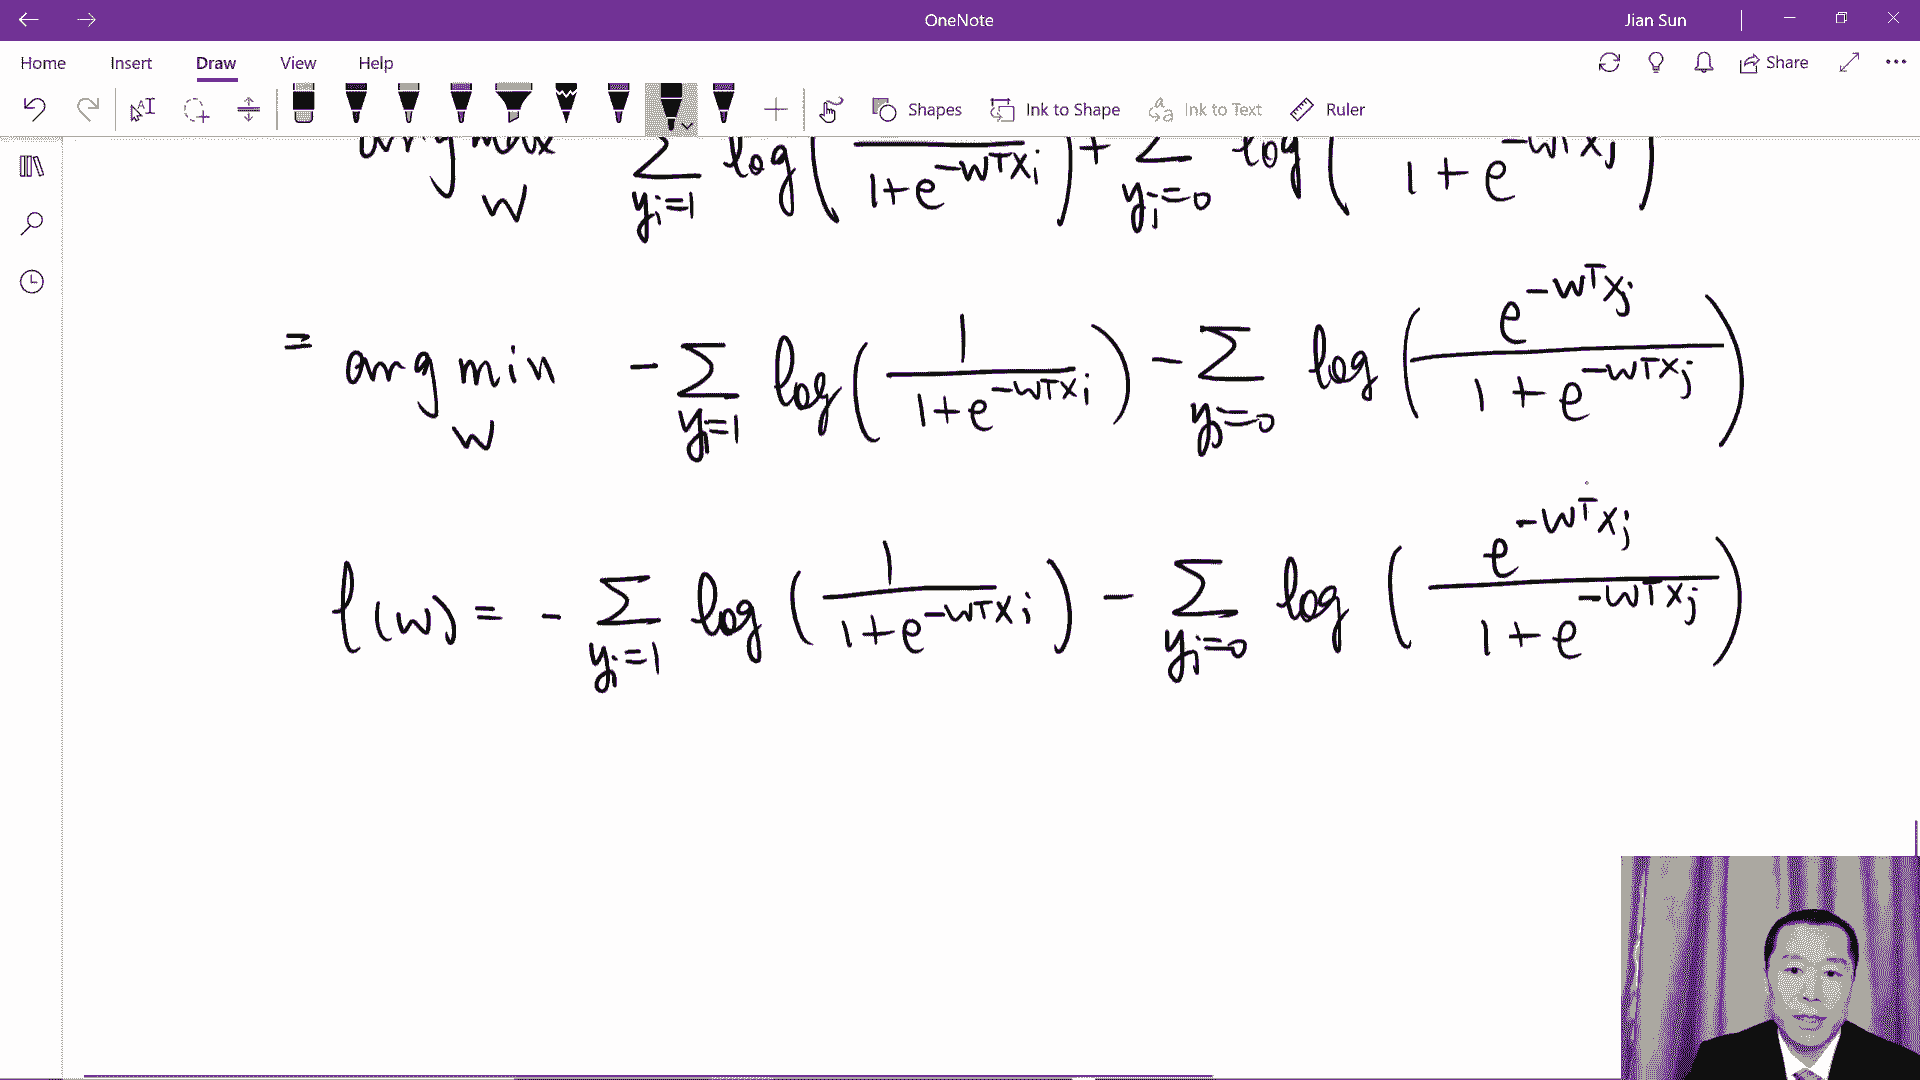 OneNote
Jian Sun
Home Insert Draw View Help
Share
Shapes Ink to Shape Ink to Text Ruler
arg max_w Σ_{y_i=1} log( / 1+e^{-w^T x_i}) + Σ_{y_j=0} log( / 1+e^{-w^T x_j})
= arg min_w - Σ_{y_i=1} log(1 / 1+e^{-w^T x_i}) - Σ_{y_j=0} log(e^{-w^T x_j} / 1+e^{-w^T x_j})
l(w) = - Σ_{y_i=1} log(1 / 1+e^{-w^T x_i}) - Σ_{y_j=0} log(e^{-w^T x_j} / 1+e^{-w^T x_j})